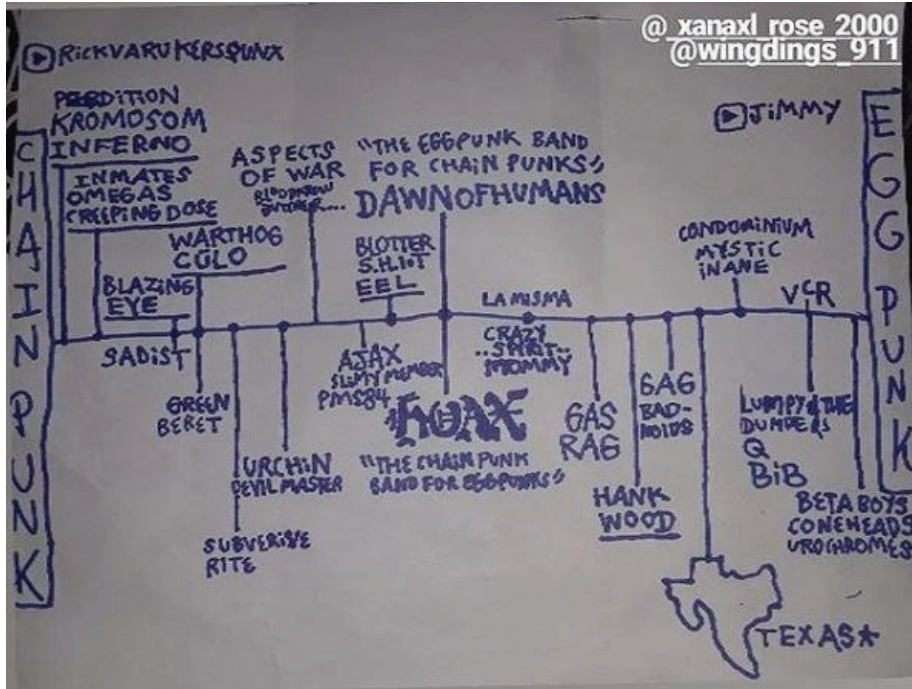 @_xanaxl_rose_2000
@wingdings_911
RICKVARUKERSPUNX
JIMMY
CHAIN PUNK
PERDITION
KROMOSOM
INFERNO
INMATES
OMEGAS
CREEPING DOSE
WARTHOG
CULO
BLAZING
EYE
SADIST
GREEN
BERET
SUBVERSIVE
RITE
URCHIN
DEVIL MASTER
ASPECTS
OF WAR
"THE EGGPUNK BAND
FOR CHAIN PUNKS"
DAWN OF HUMANS
BLOTTER
S.H.IT
EEL
AJAX
SLIMY MEMBER
PMS84
HOAX
"THE CHAIN PUNK
BAND FOR EGGPUNKS"
LA MISMA
CRAZY
..SPIRIT..
MOMMY
GAS
RAG
HANK
WOOD
GAG
BAD-
NOIDS
CONDOMINIUM
MYSTIC
INANE
TEXAS*
VCR
LUMPY & THE
DUMPERS
Q
BIB
BETA BOYS
CONEHEADS
UROCHROMES
EGG PUNK